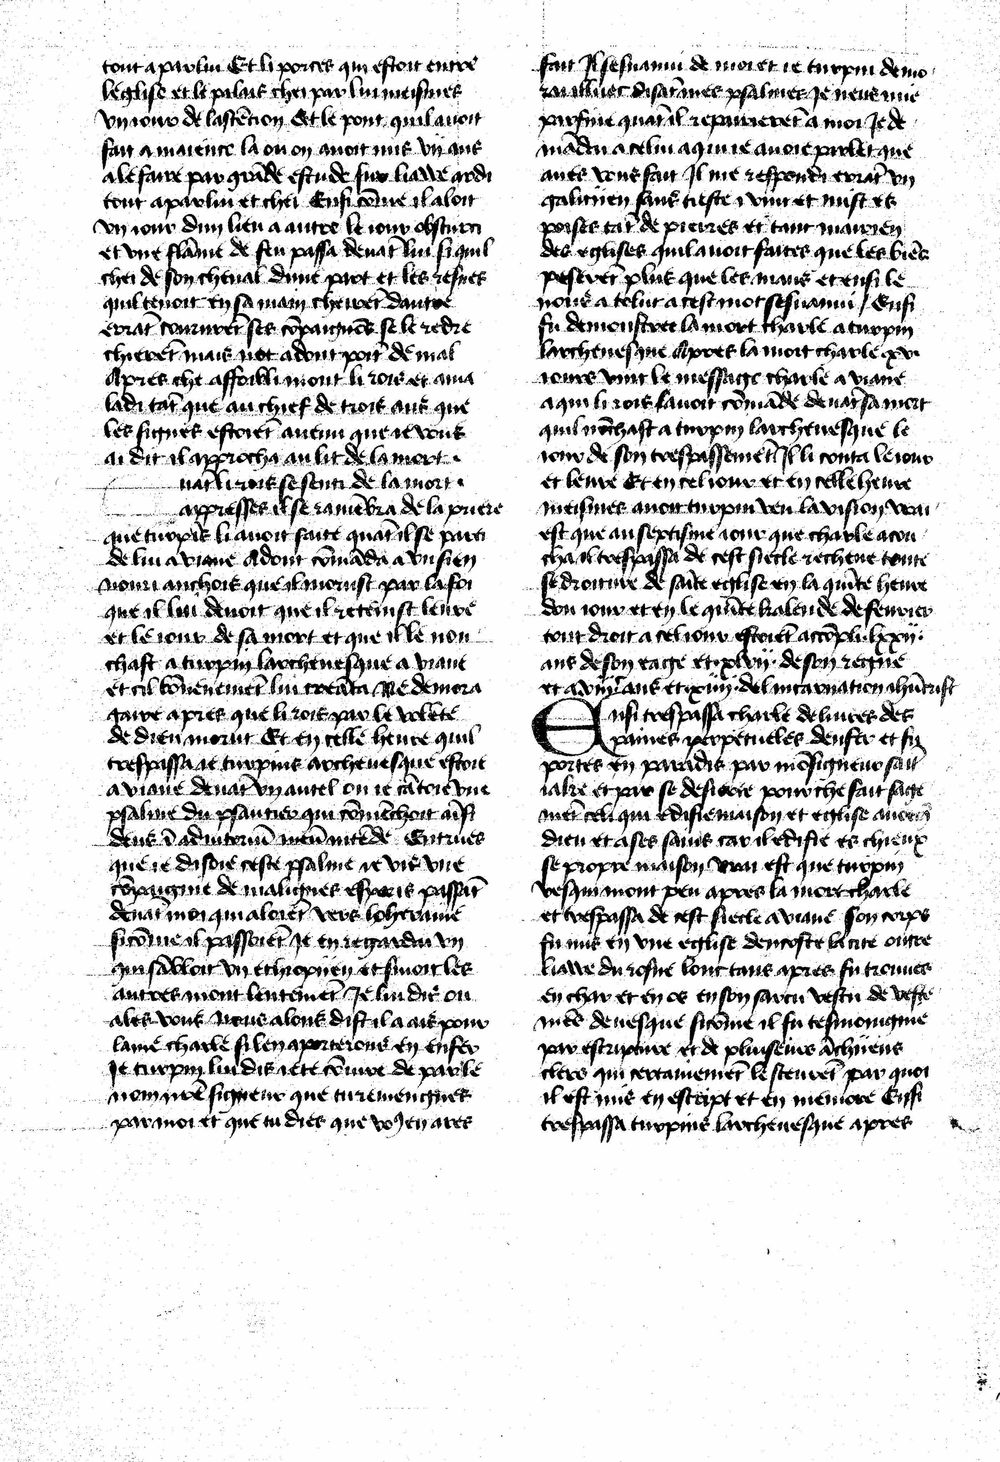 tout a par lui Et li porces qui estoit entre
leglise et le palais chei par lui meismes
vn iour de lastẽcion Et le pont quil auoit
fait a maience la ou on auoit mis vij ans
a le faire par grãde estude sur liawe ardi
tout a par lui et chei Ensi cõme il aloit
vn iour dun lieu a autre le iour obscurci
et vne flãme de feu passa deuãt lui si quil
chei de son cheual dune part et les resnes
quil tenoit en sa main cheirẽt dautre
errãt coururẽt ses cõpaignõs se le redre
chierẽt mais not adont point de mal
Apres che affoibli mout li rois et ama
ladi tãt que au chief de trois ans que
les signes estoiẽt auenu que ie vous
ai dit il approcha au lit de la mort ·
uãt li rois se senti de la mort ·
appresses il se ramẽbra de la priere
que turpĩs li auoit faite quãt il se parti
de lui a viane Adont cõmãda a vn sien
nouri anchois que il morust par la foi
que il lui deuoit que il retenist leure
et le iour de sa mort et que il le non
chast a turpin larcheuesque a viane
et cil bõnemẽt lui creãta Ne demora
gaire apres que li rois par le volẽte
de dieu morut Et en celle heure quil
trespassa ie turpins archeuesque estoie
a viane deuãt vn autel ou ie cãtoie vne
psalme du psautier qui cõmẽchoit aĩsi
deus ĩ adiutoriũ meũ intẽde Entrues
que ie disoie ceste psalme ie vis vne
cõpaignie de malignes esperis passãt
deuãt moi qui aloiẽt vers loheraine
si cõme il passoiẽt Je en regardai vn
qui sãbloit vn ethiopijen et siuoit les
autres mont lentemẽt Je lui dis ou
ales vous Nous alons dist il a ais pour
lame charle si len aporterons en enfer
Je turpin lui dis ie te cõiure de par le
nom nr̃e signeur que tu reuiengnes
par moi et que tu dies que vo9 en ares
fait Il sesuanui de moi et ie turpin demo
rai illuec disãt mes psalmes Je neus mie
parfine quãt il repairierẽt a moi Je de
mãdai a celui a qui ie auoie parlet que
aues vous fait Il me respondi errãt vn
galicijen sans tieste i vint et mist es
poises tãt de pierres et tant mairien
des eglises quil auoit faites que les biẽs
peserẽt plus que les maus et ensi le
nous a tolut a cest mot sesuanui / Ensi
fu demonstree la mort charle a turpin
larcheuesque Apres la mort charle .xv.
iours vint le message charle a viane
a qui li rois lauoit cõmãde deuãt sa mort
quil nõchast a turpin larcheuesque le
iour de son trespassemẽt Il li conta le iour
et leure Et en cel iour et en celle heure
meismes auoit turpin veu la vision vrai
est que au septisme iour que charle acou
cha il trespassa de cest siecle rechene toute
se droiture de sãite eglise en la quĩte heure
dou iour et en le quĩte kalende de feurier
tout droit a cel iour estoiẽt acõpli .lxxij.
ans de son eage et .xlvij. de son regne
et a viijc ans et .xiiij. del incarnation ihũcrist
Ensi trespassa charle deliures des
paines perpetueles denfer et fu
portes en paradis par mõsigneur saĩt
iakre et par se desierte pour che fait sage
mẽt celi qui edifie maison et eglise auoecq̃
dieu et a ses sains car il edifie es chieux
se propre maison Vrai est que turpin
vesqui mont peu apres la mort charle
et trespassa de cest siecle a viane Son corps
fu mis en vne eglise dencoste la cite outre
liawe du rosne lonc tans apres fu trouues
en char et en os en son sarcu vestu de veste
mẽs deuesque si cõme il fu tesmoingnie
par escripture et de pluiseurs ãchijens
clers qui certainemẽt le sceurẽt par quoi
il est mis en escript et en memore Ensi
trespassa turpins larcheuesque apres